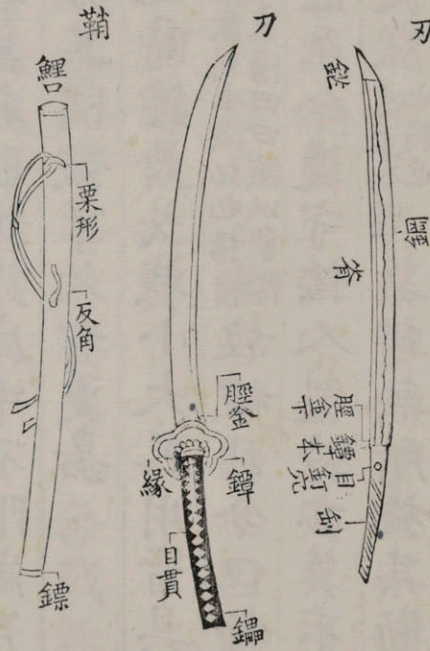 刃
鋩
脛金下
鐔本
目釘穴
刀
脛金
鐔
縁
目貫
鞘
鯉口
栗形
反角
鏢